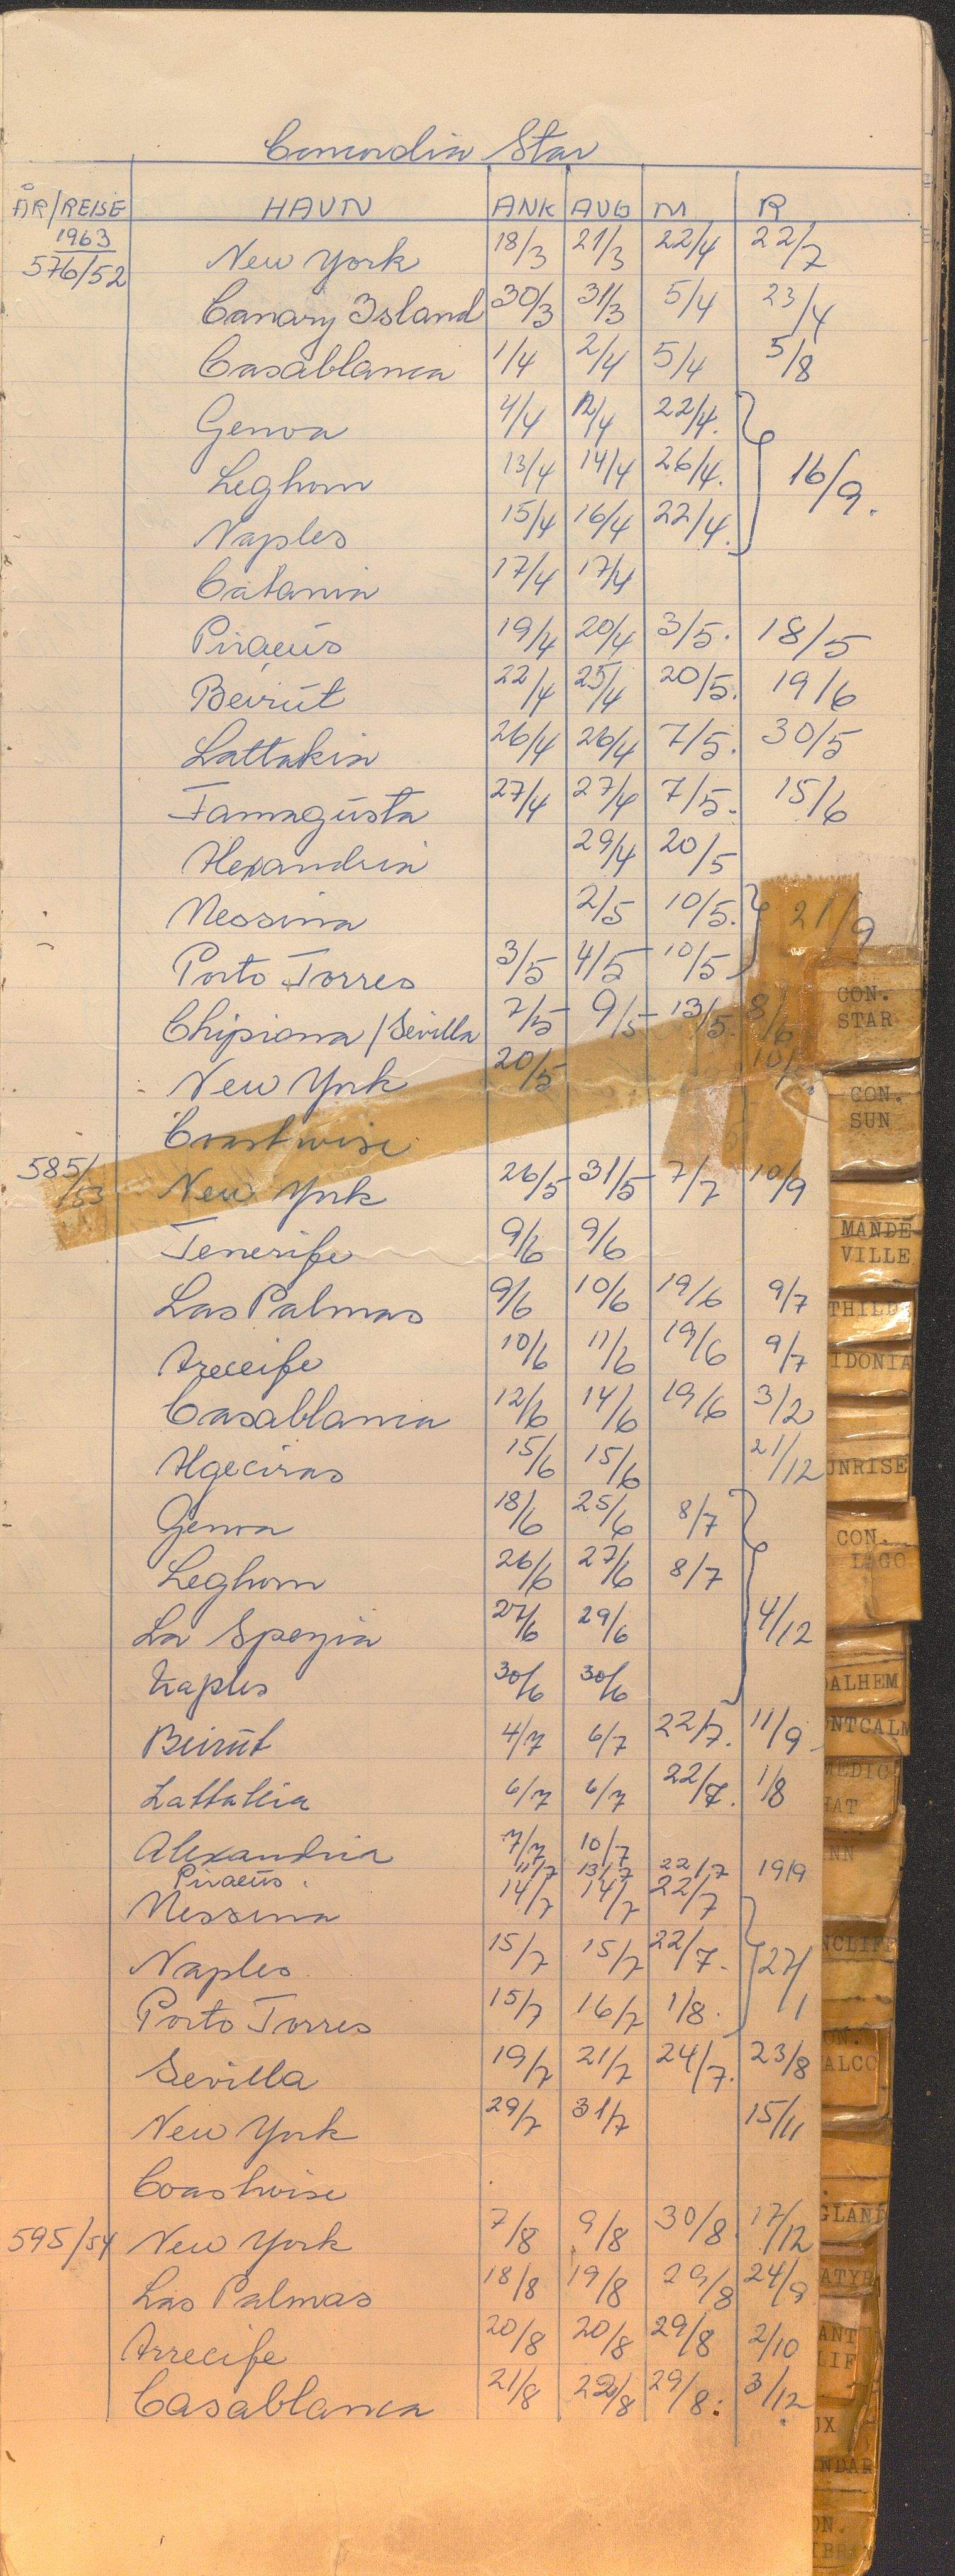 Concordia Star
ÅR/REISE HAVN ANK AVG M R
1963
576/52 New York 18/3 21/3 22/4 22/7
Canary Island 30/3 31/3 5/4 23/4
Casablanca 1/4 2/4 5/4 5/8
Genoa 4/4 12/4 22/4.
Leghorn 13/4 14/4 26/4. 16/9.
Naples 15/4 16/4 22/4.
Catania 17/4 17/4
Piraeus 19/4 20/4 3/5. 18/5
Beirut 22/4 25/4 20/5. 19/6
Lattakia 26/4 26/4 7/5. 30/5
Famagusta 27/4 27/4 7/5. 15/6
Alexandria 29/4 20/5
Messina 2/5 10/5. 21/9
Porto Torres 3/5 4/5 10/5
Chipiona/Sevilla 7/5 9/5 13/5. 8/6
New York 20/5
Coastwise
585/53 New York 26/5 31/5 7/7 10/9
Tenerife 9/6 9/6
Las Palmas 9/6 10/6 19/6 9/7
Arecife 10/6 11/6 19/6 9/7
Casablanca 12/6 14/6 19/6 3/2
Algeciras 15/6 15/6 21/12
Genoa 18/6 25/6 8/7
Leghorn 26/6 27/6 8/7
La Spezia 27/6 29/6 4/12
Naples 30/6 30/6
Beirut 4/7 6/7 22/7. 11/9
Lattakia 6/7 6/7 22/7. 1/8
Alexandria 7/7 10/7
Piraeus. 11/7 13/7 22/7 19/9
Messina 14/7 14/7 22/7
Naples 15/7 15/7 22/7. 27/1
Porto Torres 15/7 16/7 1/8.
Sevilla 19/7 21/7 24/7. 23/8
New York 29/7 31/7 15/11
Coastwise
595/54 New York 7/8 9/8 30/8 17/12
Las Palmas 18/8 19/8 29/8 24/9
Arrecife 20/8 20/8 29/8 2/10
Casablanca 21/8 22/8 29/8. 3/12
CON.
STAR
CON.
SUN
MANDE
VILLE
THILD
IDONIA
UNRISE
CON.
ALHEM
NTCALM
MEDIC
HAT
NN
NCLIFF
ON.
ALCO
GLAND
ATYR
ANT
LIF
UX
NDAR
ON.